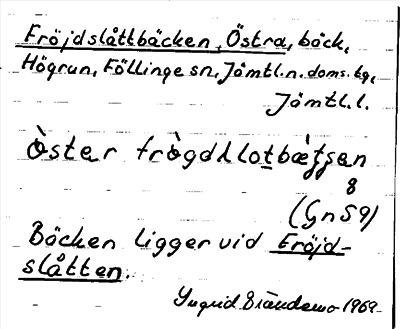 Fröjdslåttbäcken, Östra, bäck,
Högrun, Föllinge sn, Jämtl. n. doms. tg,
Jämtl. l.
òster frògdslotbæ̀ʃʃen
8
(Gn 59)
Bäcken ligger vid Fröjd-
slåtten.
Ingrid 1969